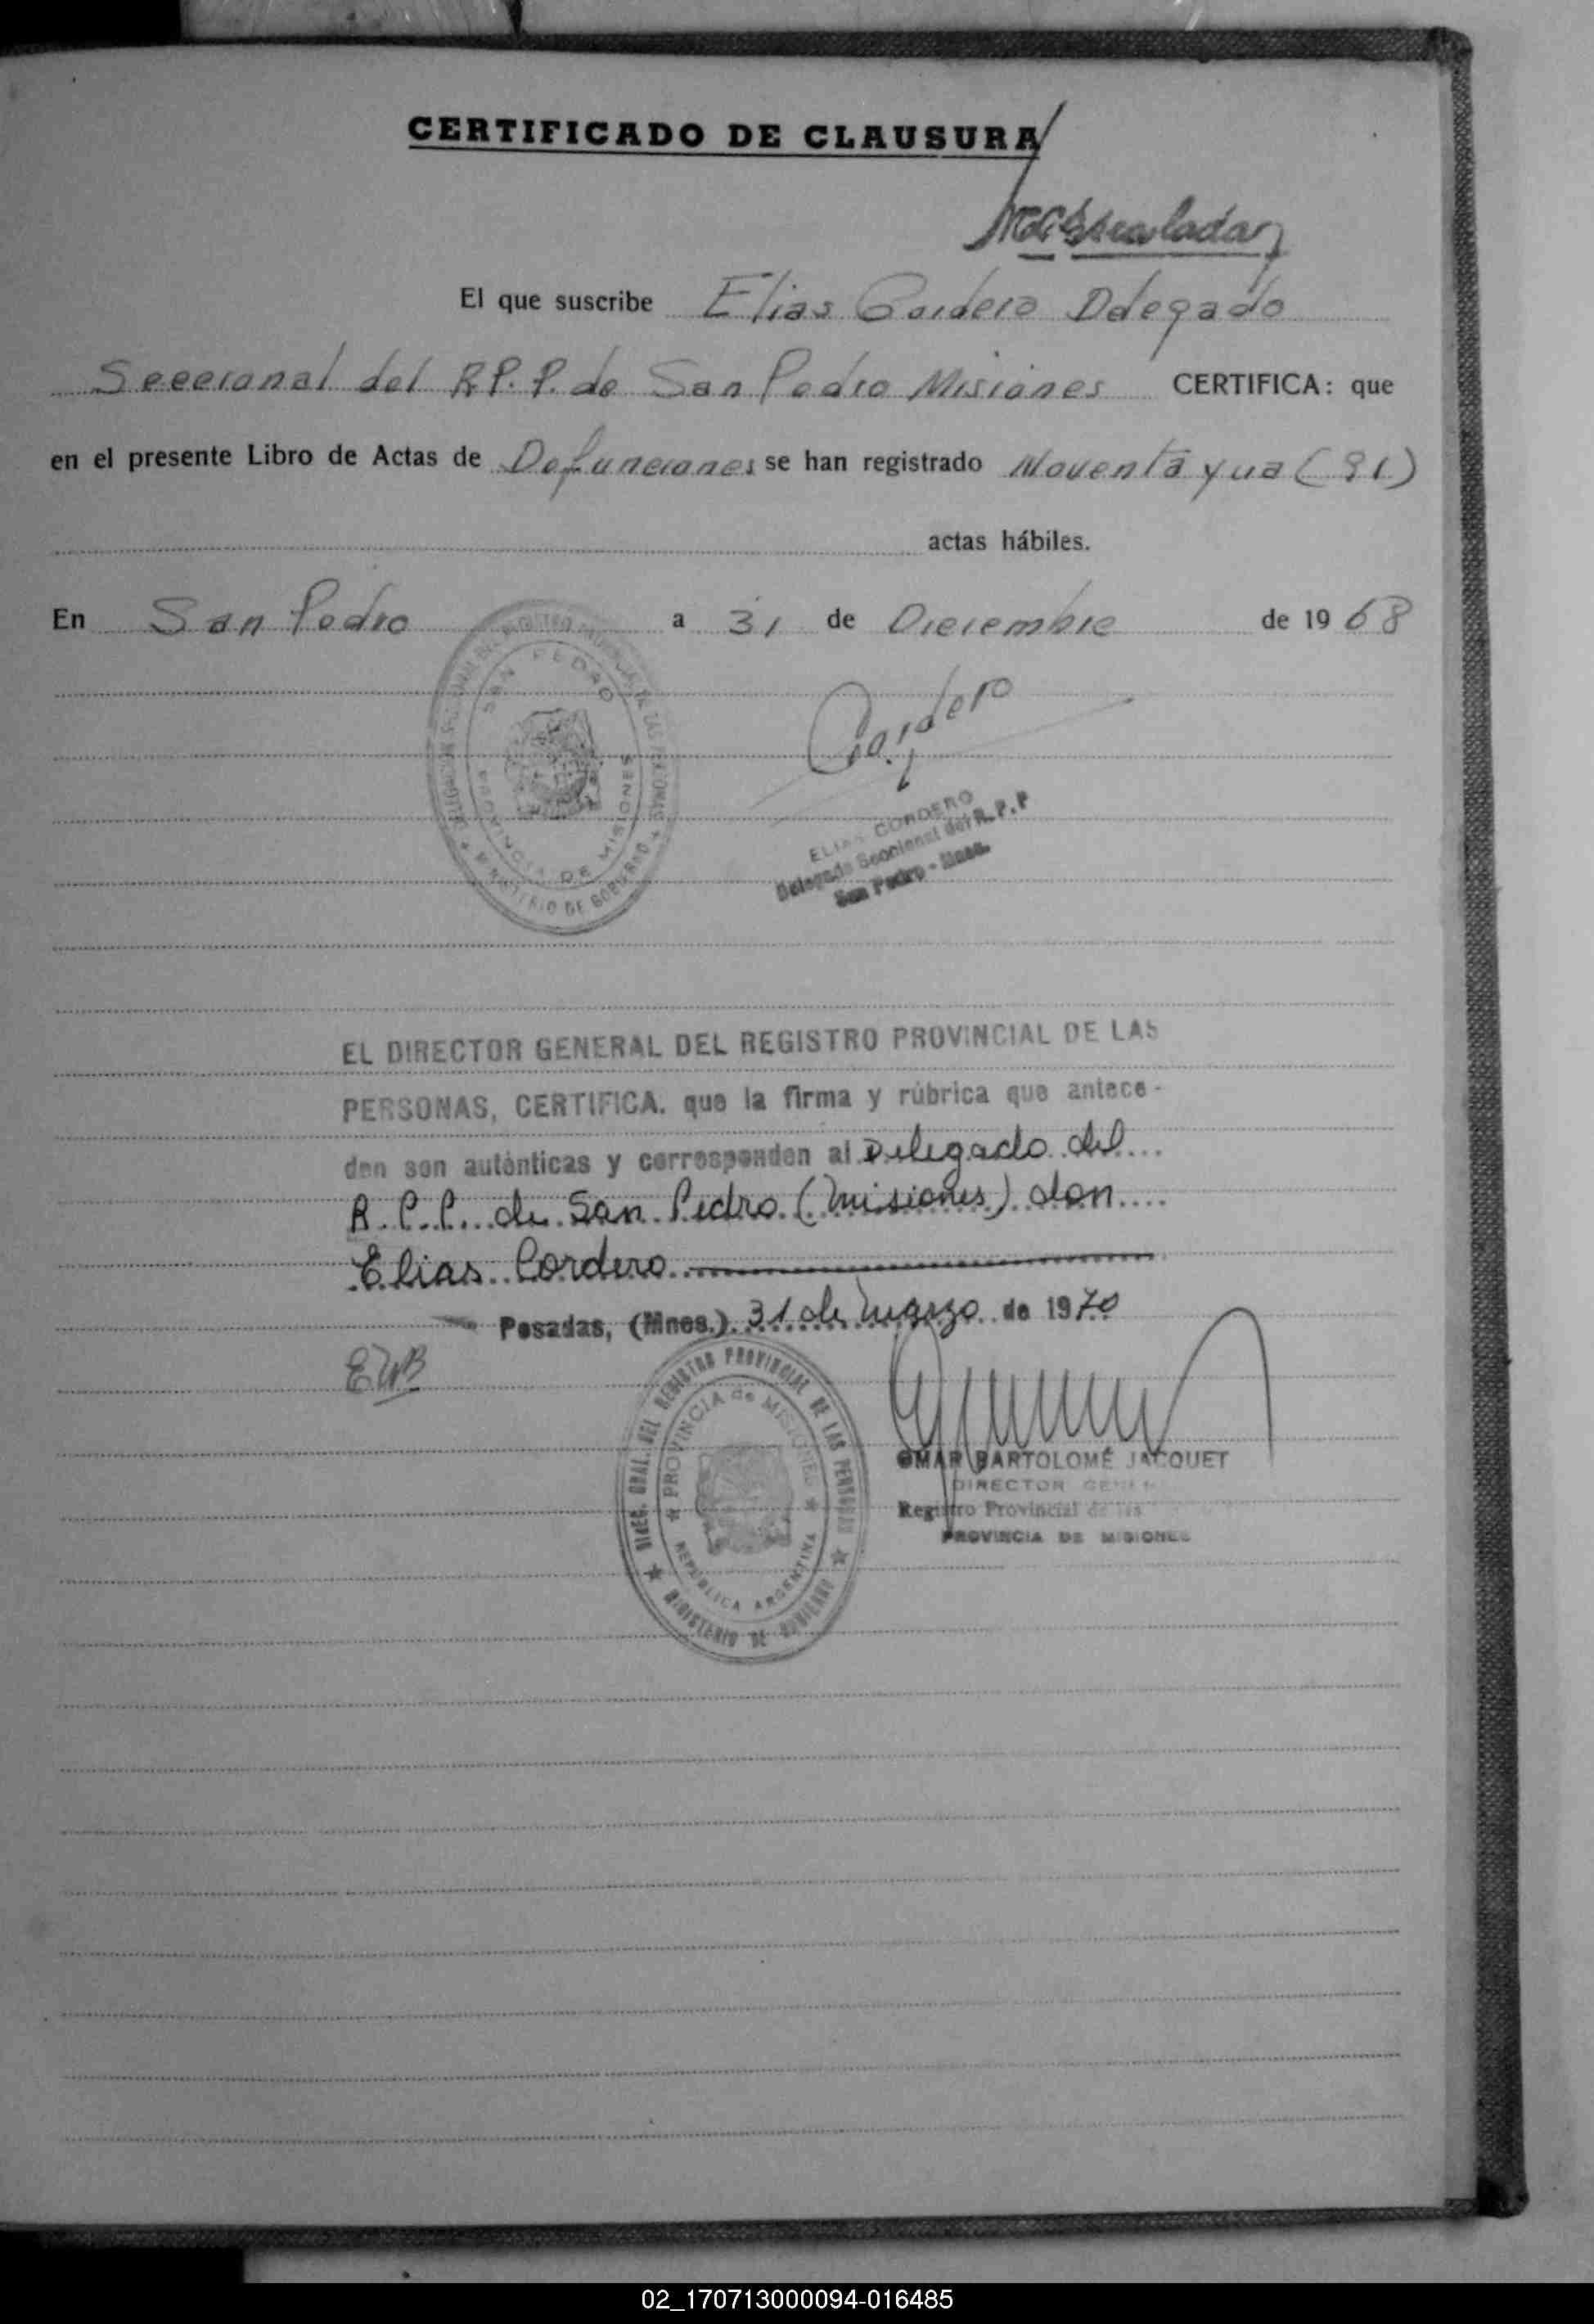 CERTIFICADO DE CLAUSURA
El que suscribe Elias Cordero Delegado
Seccional del R.P.P. de San Pedro Misiones CERTIFICA: que
en el presente Libro de Actas de Defunciones se han registrado Noventa y una (91)
actas hábiles.
En San Pedro a 31 de Diciembre de 1968
SAN PEDRO
PROVINCIA DE MISIONES
MINISTERIO DE GOBIERNO
Cordero
ELIAS CORDERO
Delegado Seccional del R.P.P
San Pedro - Mnes.
EL DIRECTOR GENERAL DEL REGISTRO PROVINCIAL DE LAS
PERSONAS, CERTIFICA. que la firma y rúbrica que antece-
den son auténticas y corresponden al Delegado del
R.P.P. de San Pedro (Misiones) don
Elias Cordero
Posadas, (Mnes.) 31 de Marzo de 1970
EWB
DIREC. GRAL. DEL REGISTRO PROVINCIAL DE LAS PERSONAS
PROVINCIA de MISIONES
REPUBLICA ARGENTINA
MINISTERIO DE GOBIERNO
OMAR BARTOLOMÉ JACQUET
DIRECTOR
Registro Provincial de las
PROVINCIA DE MISIONES
02_170713000094-016485